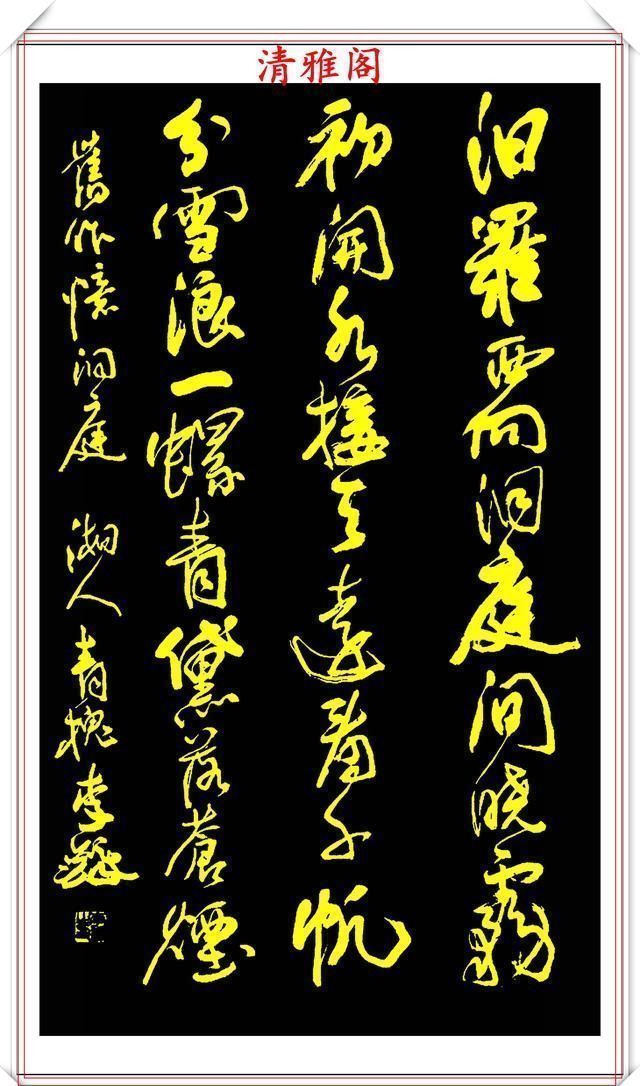 清雅阁
汨羅西向洞庭間曉霧
初開水接天遠看千帆
分雪浪一螺青黛落蒼煙
舊作憶洞庭 湖人青槐李鐸